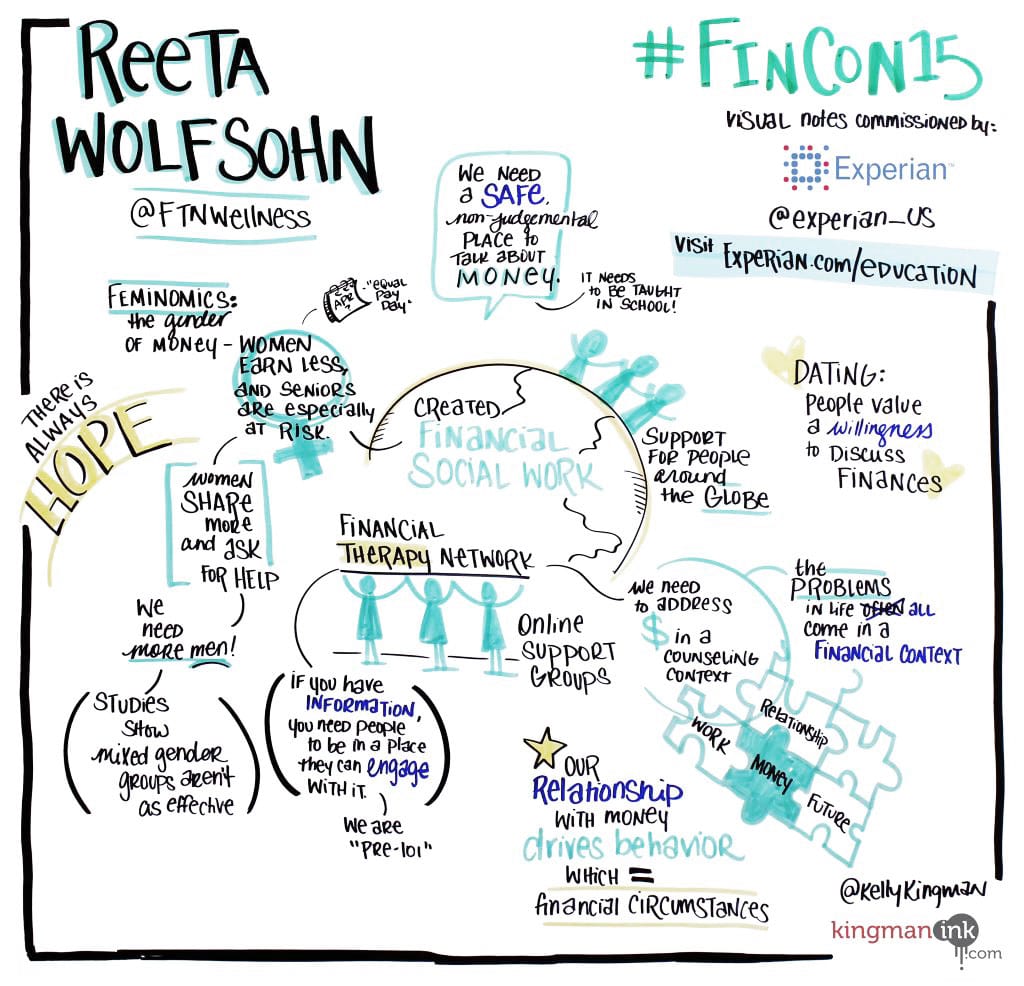 ReeTA
WOLFSOHN
@FTNWellness
#FINCON15
VISUAL notes commissioned by:
Experian™
@experian_US
Visit Experian.com/education
We NeeD
a SAFE,
non-judgemental
PLACE to
TALK ABOUT
MONEY.
IT NEEDS
to BE TAUGHT
IN SCHOOL!
FEMINOMICS:
the gender
OF MONEY - WOMEN
EARN LESS,
AND SENIORS
are especially
AT RISK.
APR
"EQUAL
PAY
DAY"
THERE IS
ALWAYS
HOPE
women
SHARE
more
and ASK
FOR HELP
We
need
more men!
STUDIES
SHOW
mixed gender
groups aren't
as effective
CREATED
FINANCIAL
SOCIAL WORK
SUPPORT
FOR PEOPLE
around
the GLOBE
DATING:
People value
a willingness
to DISCUSS
FINANCES
FINANCIAL
THERAPY NETWORK
Online
SUPPORT
GROUPS
IF you have
INFORMATION,
you need people
to be in a place
they can engage
WITH IT.
We are
"PRE-101"
We need
to address
$ in a
COUNSELING
CONTEXT
the
PROBLEMS
IN LIFE often ALL
come in a
FINANCIAL CONTEXT
Relationship
WORK
MONEY
FUTURE
OUR
Relationship
WITH MONEY
drives behavior
WHICH =
financial CIRCUMSTANCES
@KellyKingman
kingman ink
.com